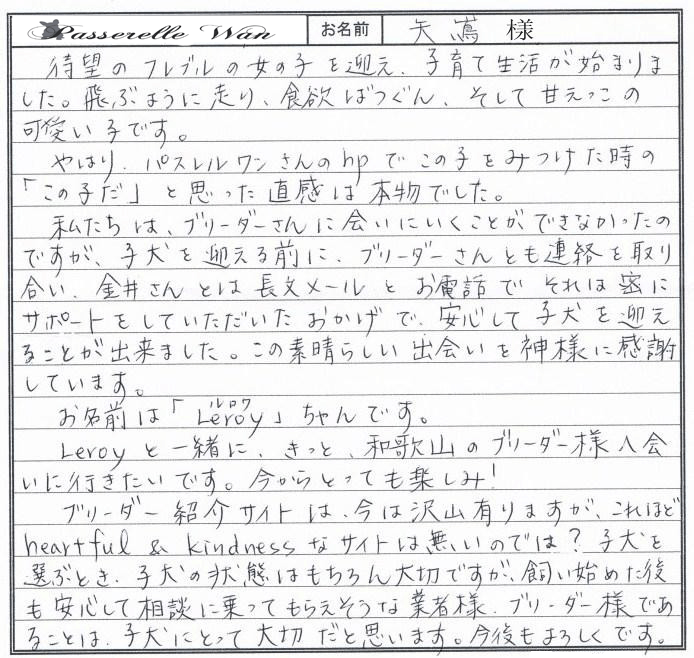 Passerelle Wan お名前 矢嶌 様
待望のフレブルの女の子を迎え、子育て生活が始まりま
した。飛ぶように走り、食欲ばつぐん、そして甘えっこの
可愛い子です。
やはり、パスレルワンさんのhpでこの子をみつけた時の
「この子だ」と思った直感は本物でした。
私たちは、ブリーダーさんに会いにいくことができなかったの
ですが、子犬を迎える前に、ブリーダーさんとも連絡を取り
合い、金井さんとは長文メールとお電話でそれは密に
サポートをしていただいたおかげで、安心して子犬を迎え
ることが出来ました。この素晴らしい出会いを神様に感謝
しています。
ルロワ
お名前は「Leroy」ちゃんです。
Leroyと一緒に、きっと、和歌山のブリーダー様へ会
いに行きたいです。今からとっても楽しみ!
ブリーダー紹介サイトは、今は沢山有りますが、これほど
heartful & kindnessなサイトは無いのでは?子犬を
選ぶとき、子犬の状態はもちろん大切ですが、飼い始めた後
も安心して相談に乗ってもらえそうな業者様、ブリーダー様であ
ることは、子犬にとって大切だと思います。今後もよろしくです。